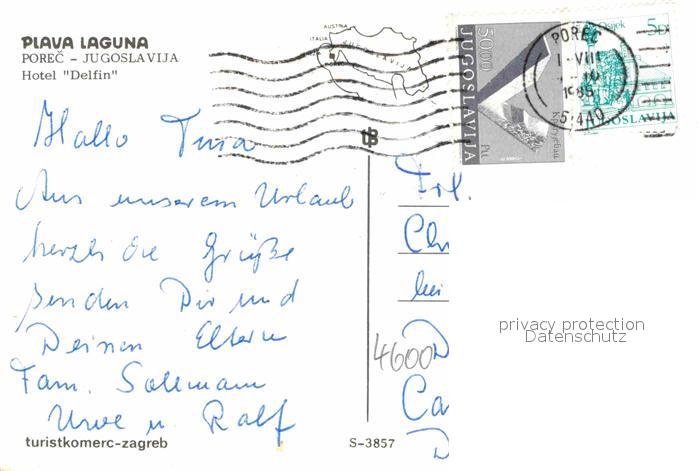 PLAVA LAGUNA
POREČ – JUGOSLAVIJA
Hotel "Delfin"
AUSTRIA
ITALIA
JUGOSLAVIJA
5000
JUGOSLAVIJA
Osijek
5D
JUGOSLAVIJA
POREČ
VIII
1985
Hallo
Aus unserem Urlaub
herzliche Grüße
senden Dir und
Deinen Eltern
Fam.
u. Ralf
turistkomerc-zagreb
S-3857
Frl.
Ch
bei
4600 D
Ca
D
privacy protection
Datenschutz